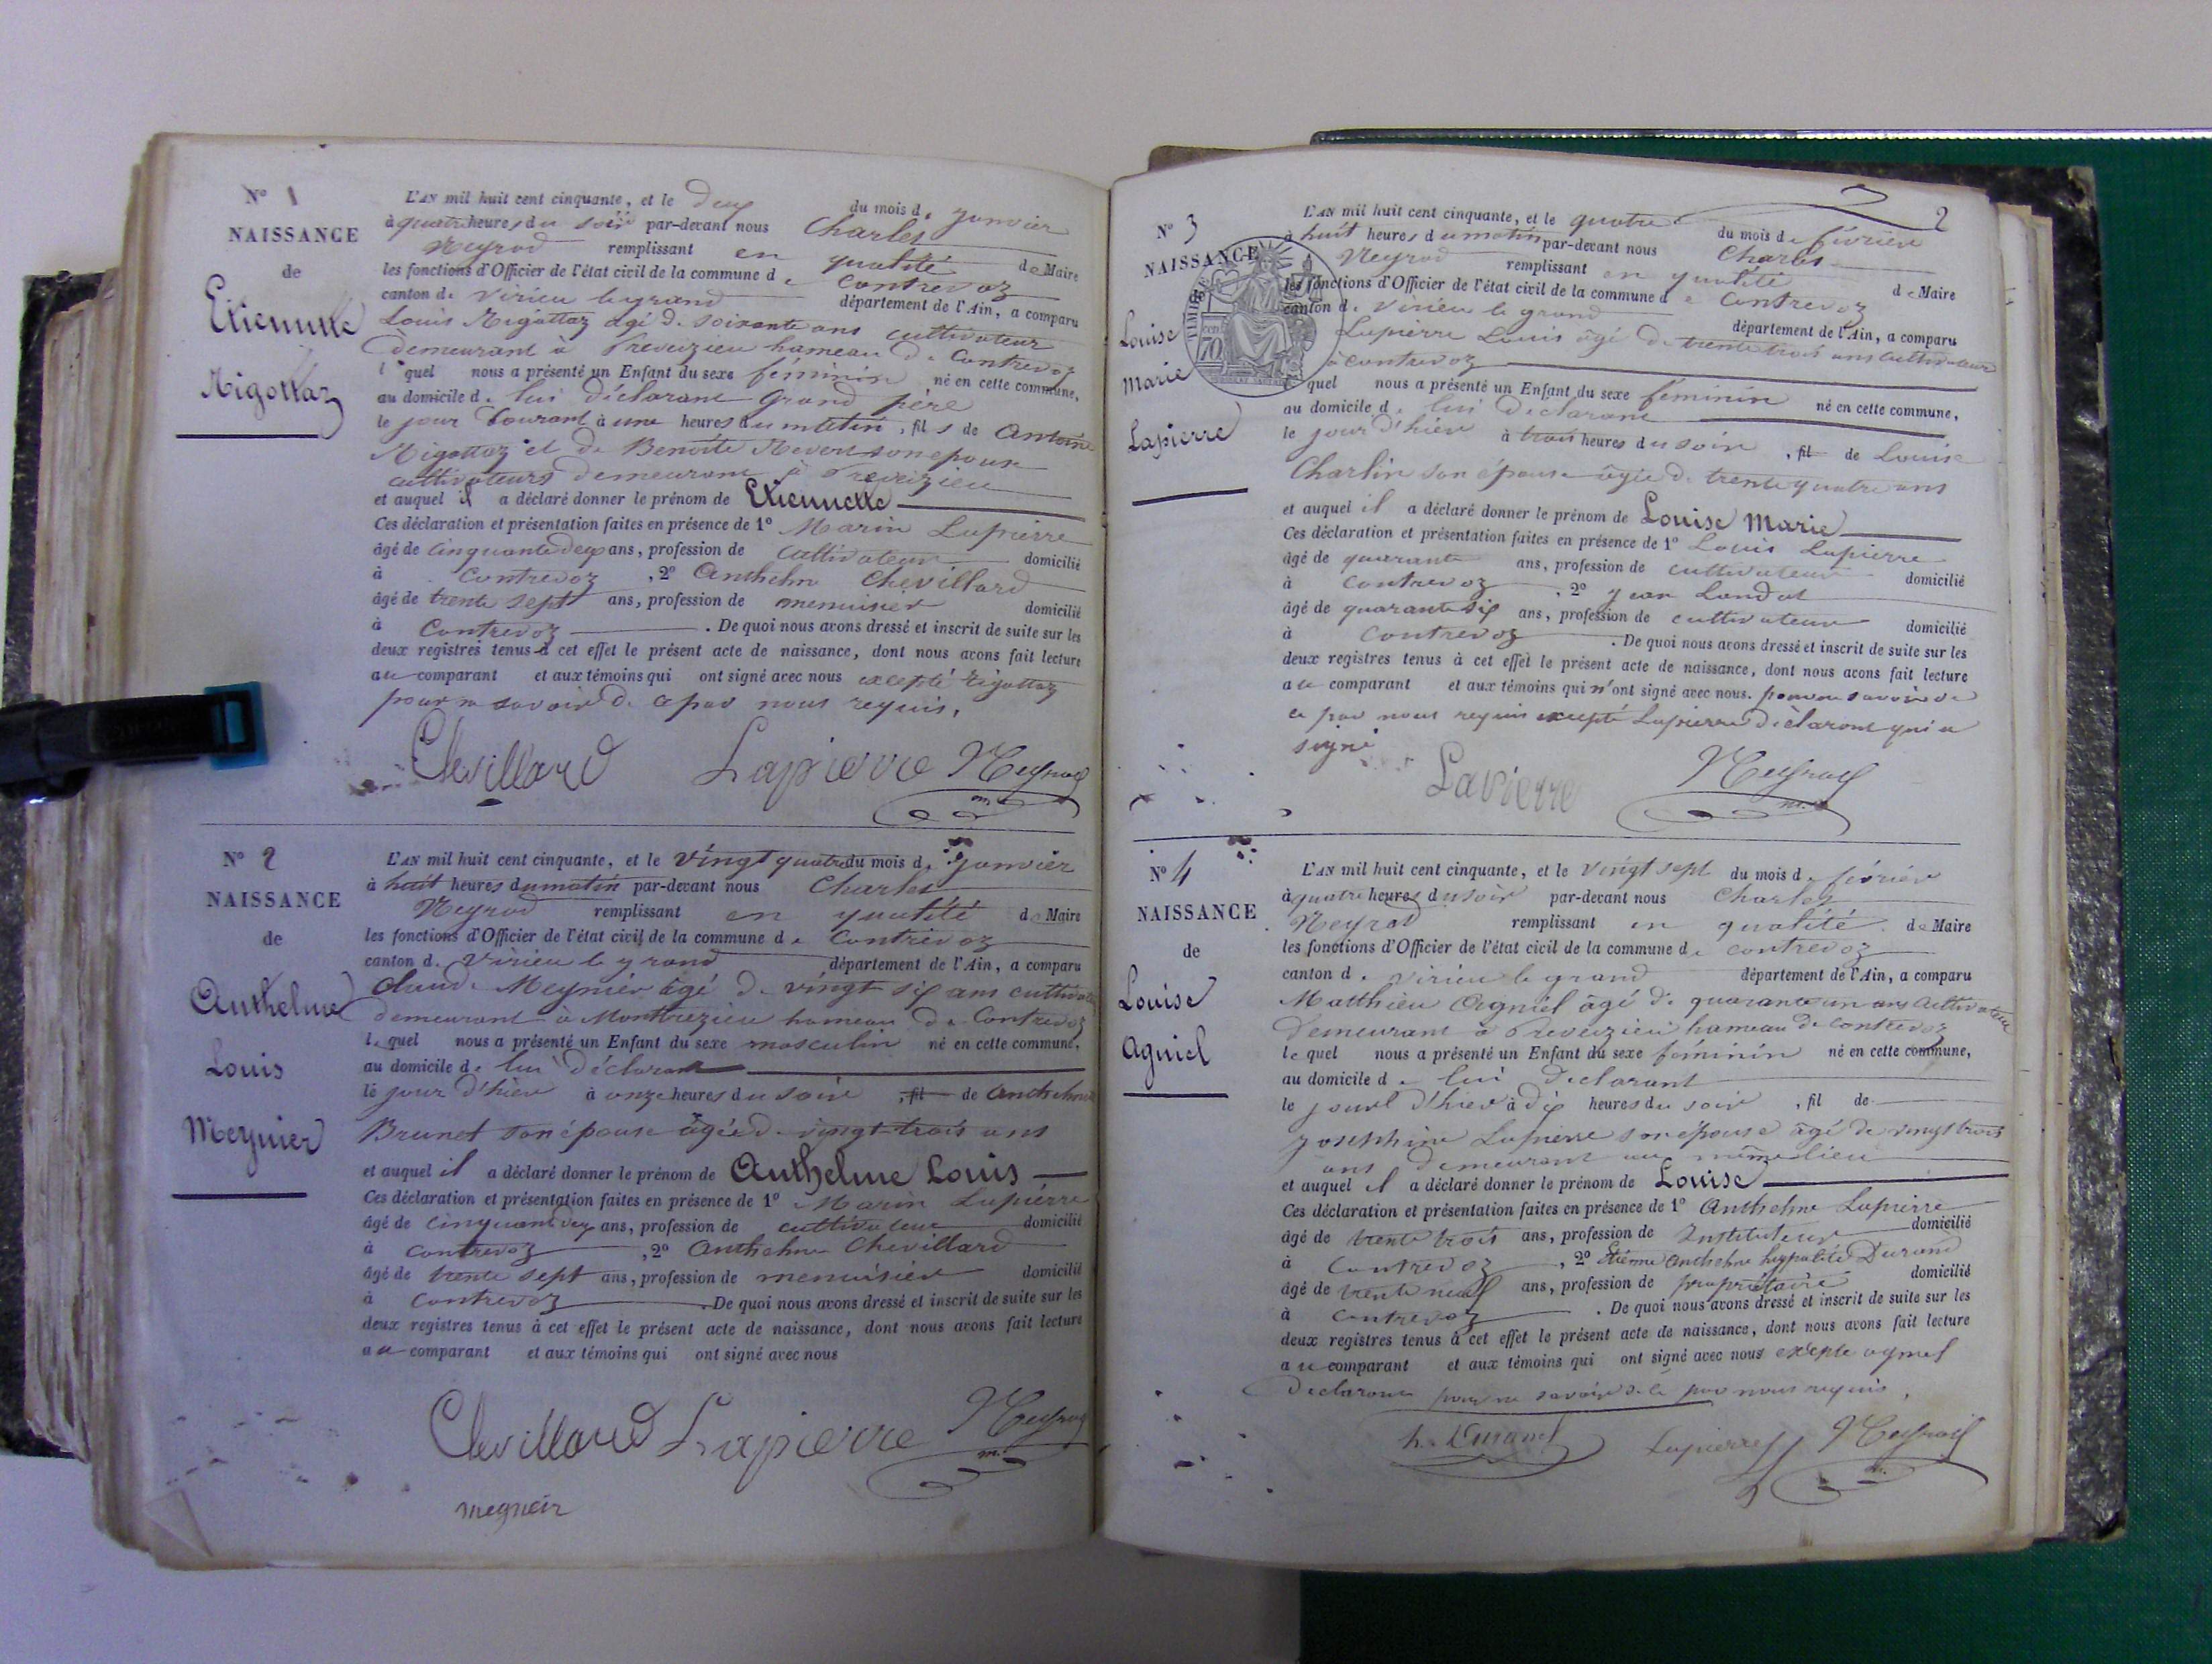 N° 1
NAISSANCE
de
Etiennette
Rigottaz
L'AN mil huit cent cinquante, et le deux du mois de janvier
à quatre heures du soir par-devant nous Charles
Neyrod remplissant en qualité de Maire
les fonctions d'Officier de l'état civil de la commune de Contrevoz
canton de Virieu le grand département de l'Ain, a comparu
Louis Rigottaz agé de soixante ans cultivateur
demeurant à Preveizieu hameau de Contrevoz
lequel nous a présenté un Enfant du sexe féminin né en cette commune,
au domicile de lui déclarant grand père
le jour courant à une heures du matin, fils de Antoine
Rigottaz et de Benoite Revert son epouse
cultivateurs demeurant à Preveizieu
et auquel il a déclaré donner le prénom de Etiennette
Ces déclaration et présentation faites en présence de 1° Marin Lapierre
âgé de cinquante deux ans, profession de cultivateur domicilié
à Contrevoz, 2° Anthelme Chevillard
âgé de trente sept ans, profession de menuisier domicilié
à Contrevoz. De quoi nous avons dressé et inscrit de suite sur les
deux registres tenus à cet effet le présent acte de naissance, dont nous avons fait lecture
au comparant et aux témoins qui ont signé avec nous excepté Rigottaz
pour ne savoir de ce par nous requis.
Chevillard Lapierre Neyrod
m.
N° 2
NAISSANCE
de
Anthelme
Louis
Meynier
L'AN mil huit cent cinquante, et le vingt quatre du mois de janvier
à huit heures du matin par-devant nous Charles
Neyrod remplissant en qualité de Maire
les fonctions d'Officier de l'état civil de la commune de Contrevoz
canton de Virieu le grand département de l'Ain, a comparu
Claude Meynier âgé de vingt six ans cultivateur
demeurant à Montbrezieu hameau de Contrevoz
lequel nous a présenté un Enfant du sexe masculin né en cette commune,
au domicile de lui déclarant
le jour d'hier à onze heures du soir, fil de Anthelmette
Brunet son épouse âgée de vingt trois ans
et auquel il a déclaré donner le prénom de Anthelme Louis
Ces déclaration et présentation faites en présence de 1° Marin Lapierre
âgé de cinquante deux ans, profession de cultivateur domicilié
à Contrevoz, 2° Anthelme Chevillard
âgé de trente sept ans, profession de menuisier domicilié
à Contrevoz. De quoi nous avons dressé et inscrit de suite sur les
deux registres tenus à cet effet le présent acte de naissance, dont nous avons fait lecture
au comparant et aux témoins qui ont signé avec nous
Chevillard Lapierre Neyrod
m.
megneir
2
N° 3
NAISSANCE
TIMBRE
70
Louise
Marie
Lapierre
L'AN mil huit cent cinquante, et le quatre du mois de février
à huit heures du matin par-devant nous Charles
Neyrod remplissant en qualité de Maire
les fonctions d'Officier de l'état civil de la commune de Contrevoz
canton de Virieu le grand département de l'Ain, a comparu
Lapierre Louis âgé de trente trois ans cultivateur
à Contrevoz
lequel nous a présenté un Enfant du sexe féminin né en cette commune,
au domicile de lui déclarant
le jour d'hier à trois heures du soir, fil de Louise
Charlin son épouse âgée de trente quatre ans
et auquel il a déclaré donner le prénom de Louise Marie
Ces déclaration et présentation faites en présence de 1° Louis Lapierre
âgé de quarante ans, profession de cultivateur domicilié
à Contrevoz, 2° Jean Landot
âgé de quarante six ans, profession de cultivateur domicilié
à Contrevoz. De quoi nous avons dressé et inscrit de suite sur les
deux registres tenus à cet effet le présent acte de naissance, dont nous avons fait lecture
au comparant et aux témoins qui n'ont signé avec nous. pour ne savoir de
ce par nous requis excepté Lapierre déclarant qui a
signé
Lapierre Neyrod
m.
N° 4
NAISSANCE
de
Louise
Agniel
L'AN mil huit cent cinquante, et le vingt sept du mois de février
à quatre heures du soir par-devant nous Charles
Neyrod remplissant en qualité de Maire
les fonctions d'Officier de l'état civil de la commune de Contrevoz
canton de Virieu le grand département de l'Ain, a comparu
Matthieu Agniel âgé de quarante un ans cultivateur
demeurant à Preveizieu hameau de Contrevoz
lequel nous a présenté un Enfant du sexe féminin né en cette commune,
au domicile de lui déclarant
le jour d'hier à dix heures du soir, fil de
Josephine Lapierre son épouse âgé de vingt trois
ans demeurant au même lieu
et auquel il a déclaré donner le prénom de Louise
Ces déclaration et présentation faites en présence de 1° Anthelme Lapierre
âgé de trente trois ans, profession de Instituteur domicilié
à Contrevoz, 2° Etienne Anthelme hypolite Durand
âgé de trente neuf ans, profession de propriétaire domicilié
à Contrevoz. De quoi nous avons dressé et inscrit de suite sur les
deux registres tenus à cet effet le présent acte de naissance, dont nous avons fait lecture
au comparant et aux témoins qui ont signé avec nous excepte agniel
declarant pour ne savoir de ce par nous requis.
h. Durand Lapierre Neyrod
m.